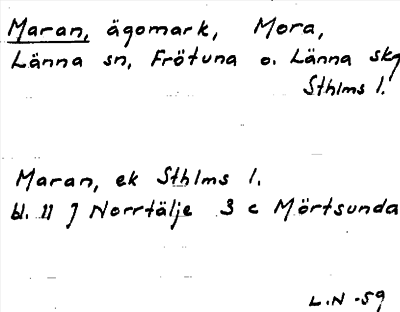 Maran, ägomark, Mora,
Länna sn, Frötuna o. Länna skg
Sthlms l.
Maran, ek Sthlms l.
bl. 11 J Norrtälje 3 c Mörtsunda
L.N -59